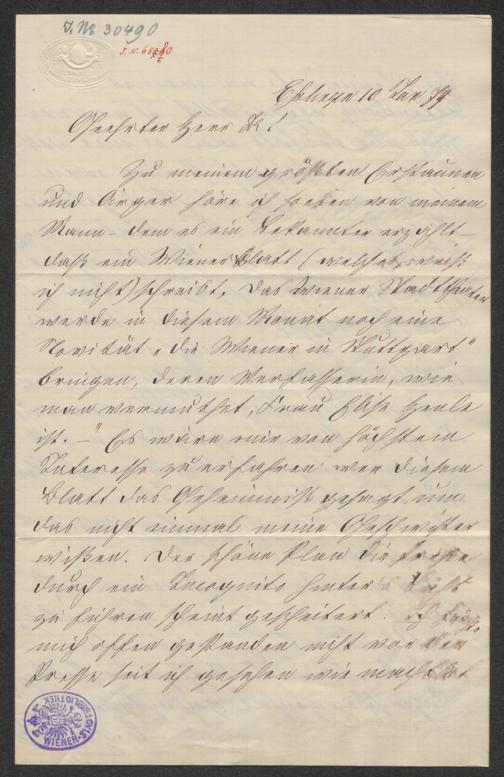 J. Nr 30490
Esslingen 10 Jan 79
Geehrter Herr Dr!
Zu meinem größten Erstaunen
und Ärger höre ich soeben von meinem
Mann – dem es ein Bekannter erzählt –
daß ein Wiener Blatt (welches weiß
ich nicht) schreibt, das Wiener Stadttheater
werde in diesem Monat noch eine
Novität „die Wiener in Stuttgart"
bringen, deren Verfasserin, wie
man vermuthet, Frau Elise Henle
ist. –" Es wäre mir von höchstem
Interesse zu erfahren wer diesem
Blatt das Geheimniß gesagt, um
das nicht einmal meine Geschwister
wißen. Der schöne Plan die Presse
durch ein Incognito hinter's Licht
zu führen scheint gescheitert. Ich
mich offen gestanden nicht vor der
Presse seit ich gesehen wie
WIENER STADTBIBLIOTHEK